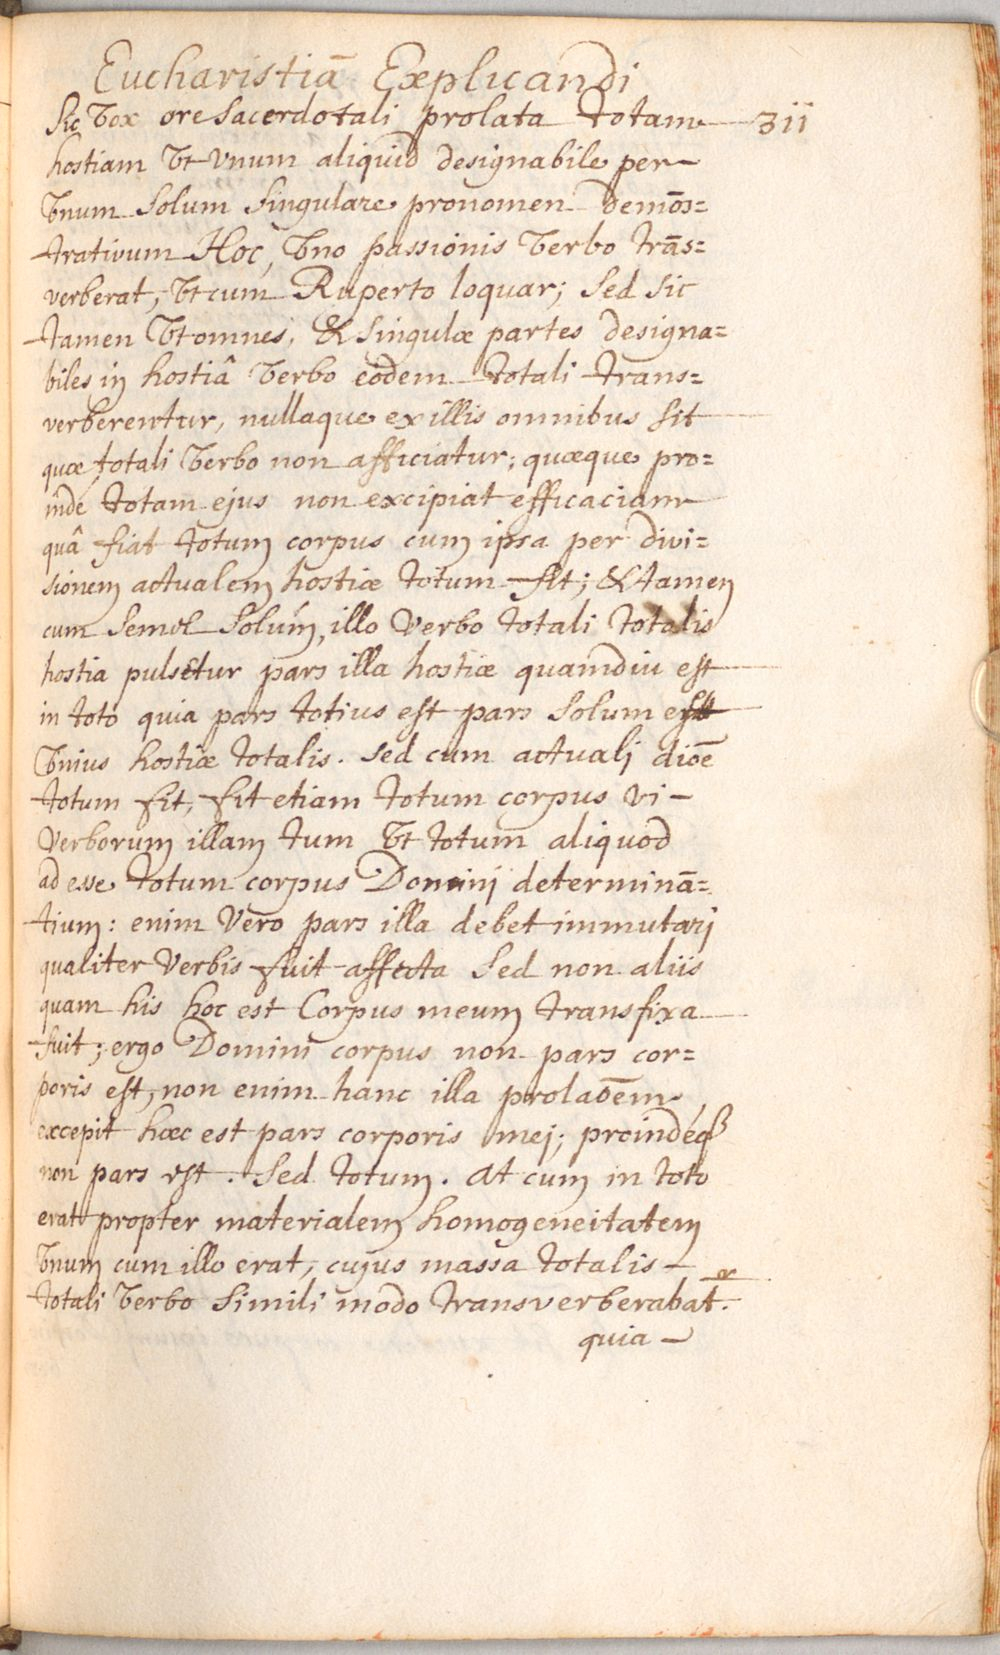 Eucharistiā Explicandi
Sic vox ore Sacerdotali prolata totam 311
hostiam vt vnum aliquid designabile per
vnum Solum Singulare pronomen demōs=
trativum Hoc, vno passionis verbo trās=
verberat, vt cum Ruperto loquar; Sed Sic
tamen vt omnes, & Singulæ partes designa=
biles in hostiâ verbo eodem totali trans=
verberentur, nullaque ex illis omnibus Sit
quæ totali verbo non afficiatur; quæque pro=
inde totam ejus non excipiat efficaciam
quâ fiat totum corpus cum ipsa per divi=
sionem actualem hostiæ totum fit; & tamen
cum Semel Solúm, illo Verbo totali totalis
hostia pulsetur pars illa hostiæ quamdiu est
in toto quia pars totius est pars Solum est
vnius hostiæ totalis. sed cum actuali diōe
totum fit, fit etiam totum corpus vi
Verborum illam tum vt totum aliquod
ad esse totum corpus Domini determinā=
tium: enim Vero pars illa debet immutari
qualiter Verbis fuit affecta Sed non aliis
quam his hoc est Corpus meum transfixa
fuit; ergo Domini corpus non pars cor=
poris est, non enim hanc illa prolaōem
excepit hæc est pars corporis mei; proindéqȝ
non pars est. Sed totum. at cum in toto
erat propter materialem homogeneitatem
vnum cum illo erat, cujus massa totalis
totali verbo Simili modo transverberabatʳ.
quia